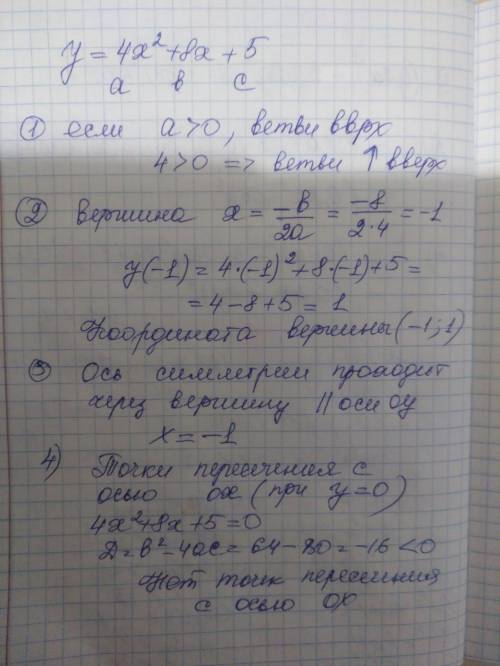 y = 4x² + 8x + 5
a в c
① если a > 0, ветви вврх
4 > 0 => ветви ↑ вверх
② Вершина x = -в/2a = -8/2·4 = -1
y(-1) = 4·(-1)² + 8·(-1) + 5 =
= 4 - 8 + 5 = 1
Координата вершины (-1; 1)
③ Ось симметрии проходит
через вершину || оси oy
x = -1
4) Точки пересечения с
осью ox (при y = 0)
4x² + 8x + 5 = 0
D = в² - 4ac = 64 - 80 = -16 < 0
Нет точек пересечения
с осью OX